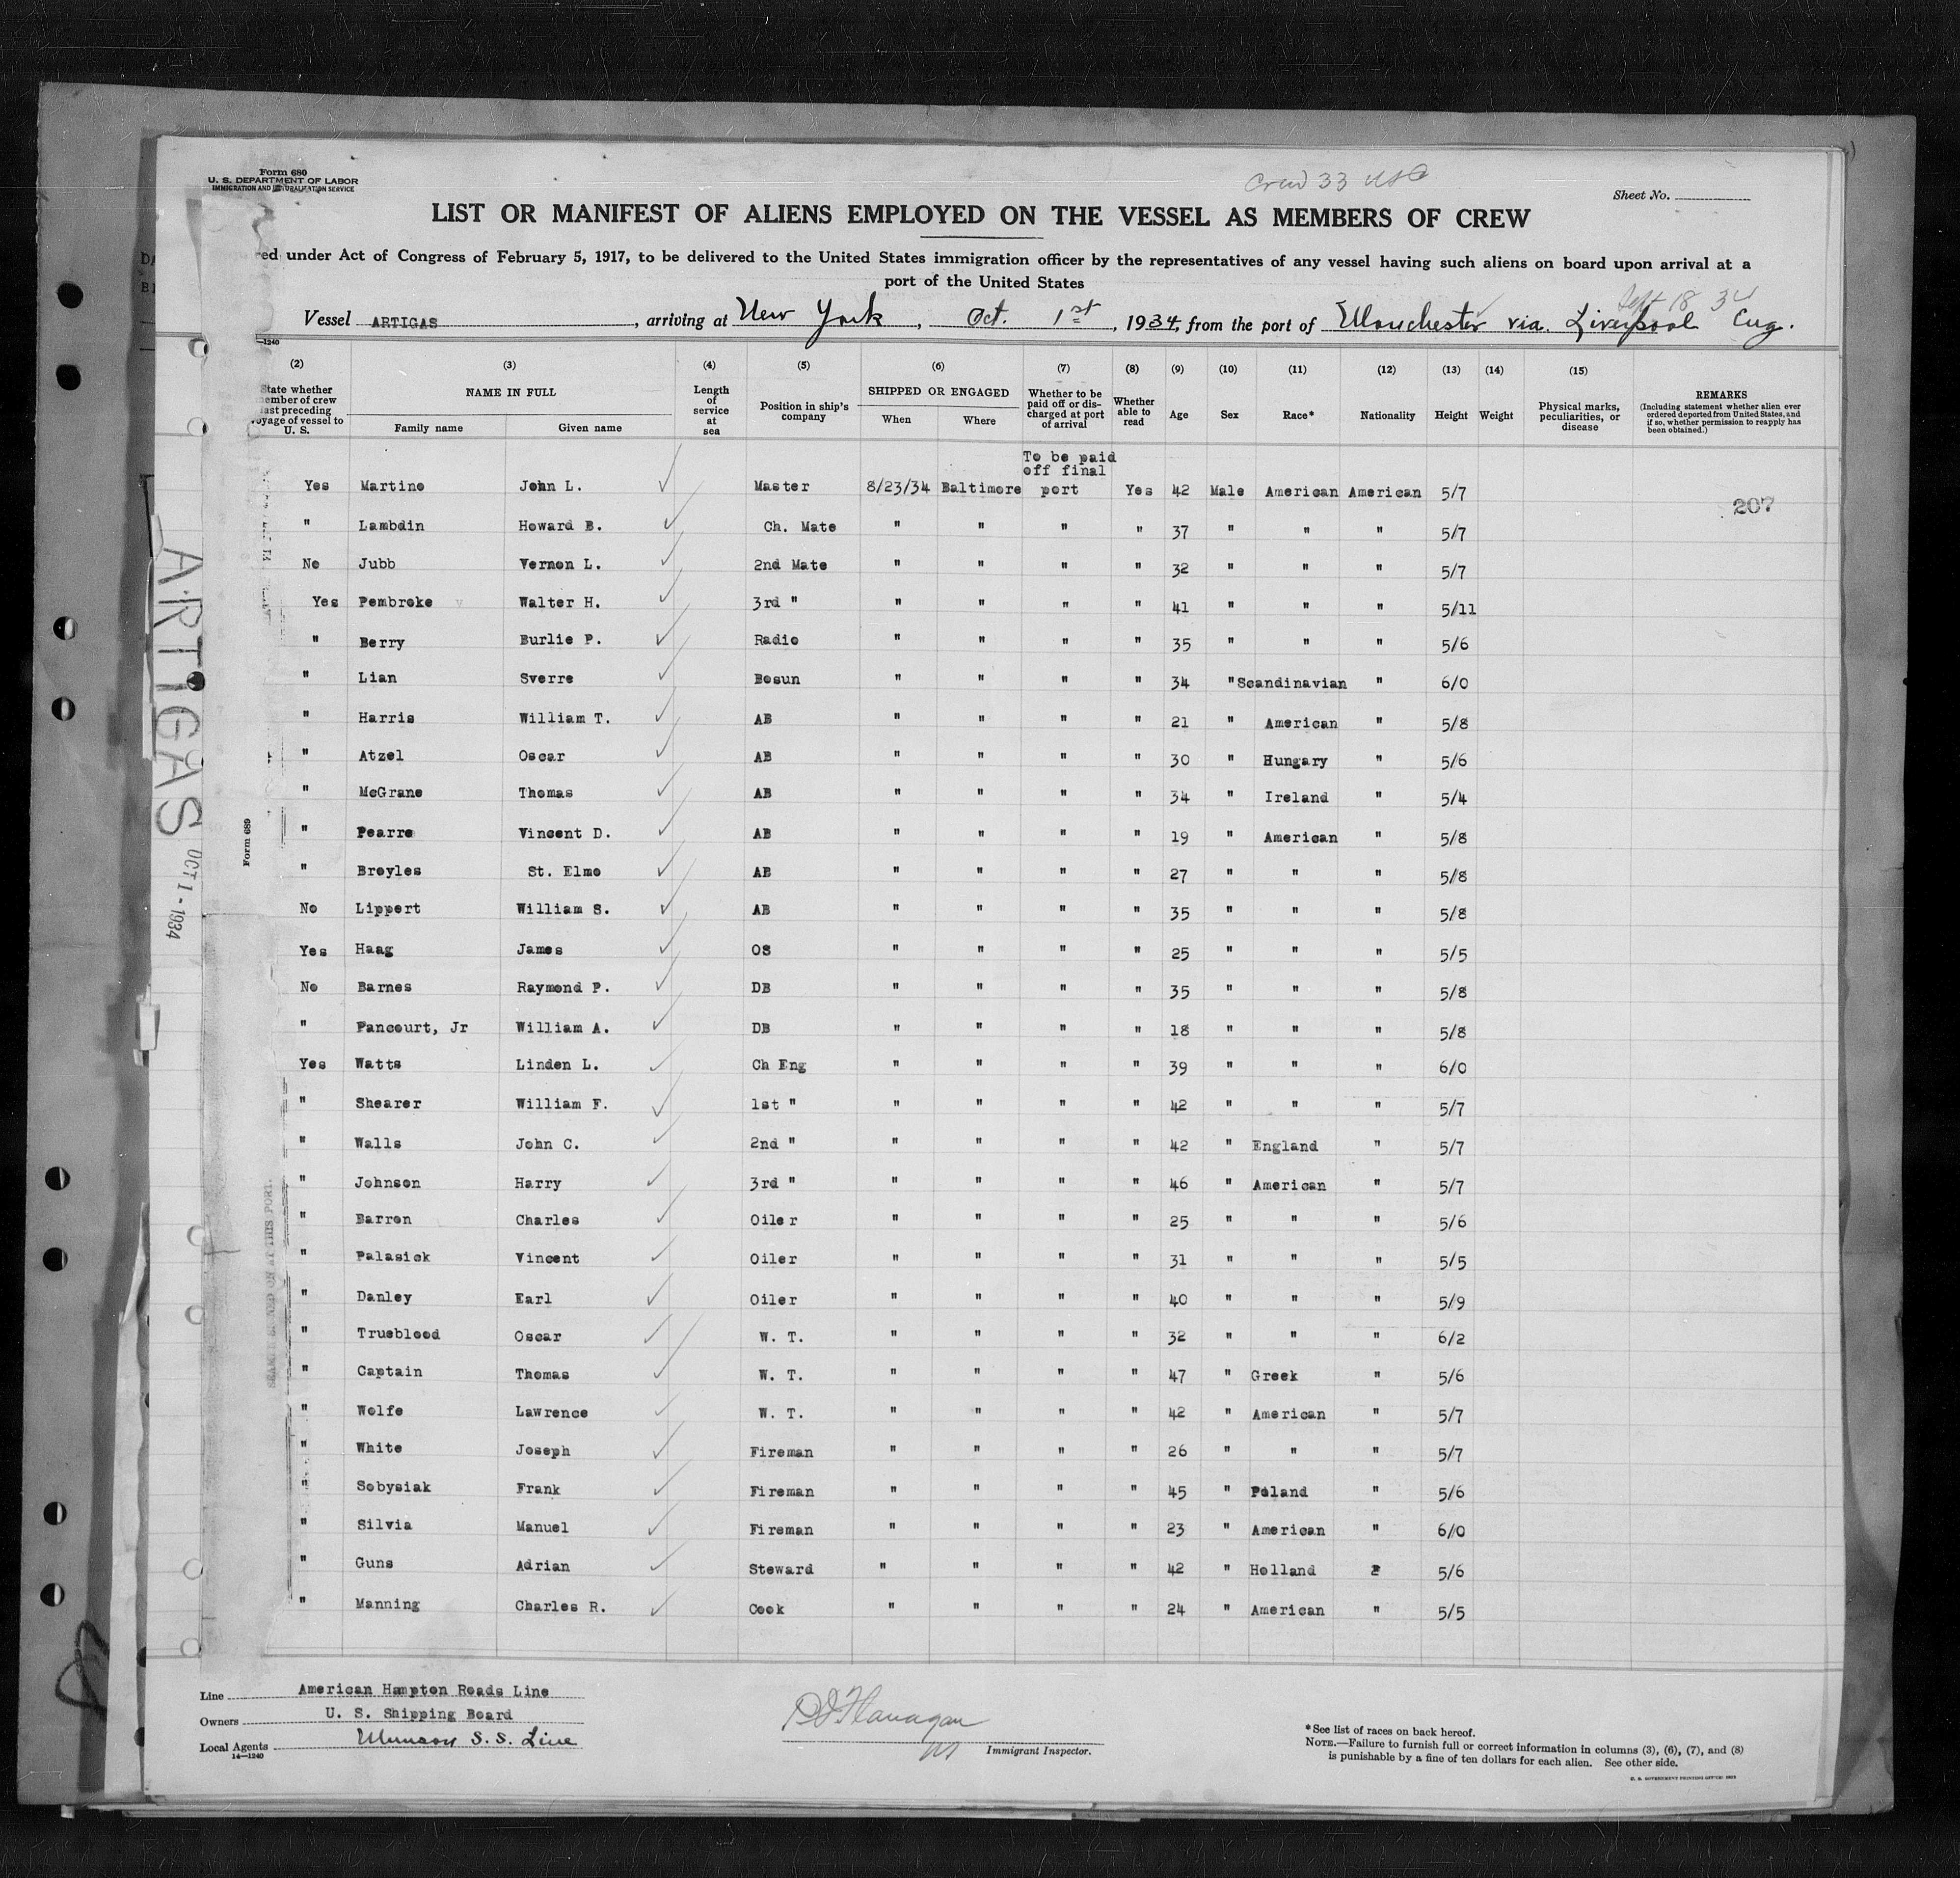 Form 680
U. S. DEPARTMENT OF LABOR
IMMIGRATION AND NATURALIZATION SERVICE
Crew 33 USC
Sheet No.
LIST OR MANIFEST OF ALIENS EMPLOYED ON THE VESSEL AS MEMBERS OF CREW
red under Act of Congress of February 5, 1917, to be delivered to the United States immigration officer by the representatives of any vessel having such aliens on board upon arrival at a
port of the United States
Sept 18 34
Vessel ARTIGAS, arriving at New York, Oct. 1st, 1934, from the port of Manchester via Liverpool Eng.
—1240
(2) (3) (4) (5) (6) (7) (8) (9) (10) (11) (12) (13) (14) (15)
State whether member of crew last preceding voyage of vessel to U. S. NAME IN FULL Family name Given name Length of service at sea Position in ship's company SHIPPED OR ENGAGED When Where Whether to be paid off or discharged at port of arrival Whether able to read Age Sex Race* Nationality Height Weight Physical marks, peculiarities, or disease REMARKS (Including statement whether alien ever ordered deported from United States, and if so, whether permission to reapply has been obtained.)
To be paid
off final
Yes Martino John L. Master 8/23/34 Baltimore port Yes 42 Male American American 5/7
207
" Lambdin Howard B. Ch. Mate " " " " 37 " " " 5/7
No Jubb Vernon L. 2nd Mate " " " " 32 " " " 5/7
Yes Pembroke Walter H. 3rd " " " " " 41 " " " 5/11
" Berry Burlie P. Radio " " " " 35 " " " 5/6
" Lian Sverre Bosun " " " " 34 " Scandinavian " 6/0
" Harris William T. AB " " " " 21 " American " 5/8
" Atzel Oscar AB " " " " 30 " Hungary " 5/6
" McGrane Thomas AB " " " " 34 " Ireland " 5/4
" Pearre Vincent D. AB " " " " 19 " American " 5/8
" Broyles St. Elmo AB " " " " 27 " " " 5/8
No Lippert William S. AB " " " " 35 " " " 5/8
Yes Haag James OS " " " " 25 " " " 5/5
No Barnes Raymond P. DB " " " " 35 " " " 5/8
" Pancourt, Jr William A. DB " " " " 18 " " " 5/8
Yes Watts Linden L. Ch Eng " " " " 39 " " " 6/0
" Shearer William F. 1st " " " " " 42 " " " 5/7
" Walls John C. 2nd " " " " " 42 " England " 5/7
" Johnson Harry 3rd " " " " " 46 " American " 5/7
" Barron Charles Oiler " " " " 25 " " " 5/6
" Palasick Vincent Oiler " " " " 31 " " " 5/5
" Danley Earl Oiler " " " " 40 " " " 5/9
" Trueblood Oscar W. T. " " " " 32 " " " 6/2
" Captain Thomas W. T. " " " " 47 " Greek " 5/6
" Wolfe Lawrence W. T. " " " " 42 " American " 5/7
" White Joseph Fireman " " " " 26 " " " 5/7
" Sobysiak Frank Fireman " " " " 45 " Poland " 5/6
" Silvia Manuel Fireman " " " " 23 " American " 6/0
" Guns Adrian Steward " " " " 42 " Holland 2 5/6
" Manning Charles R. Cook " " " " 24 " American " 5/5
ARTIGAS OCT 1 - 1934
Form 689
SEAMEN SIGNED ON AT THIS PORT.
Line American Hampton Roads Line
Owners U. S. Shipping Board
Local Agents Munson S.S. Line
14—1240
Flanagan
Immigrant Inspector.
*See list of races on back hereof.
NOTE.—Failure to furnish full or correct information in columns (3), (6), (7), and (8)
is punishable by a fine of ten dollars for each alien. See other side.
U. S. GOVERNMENT PRINTING OFFICE